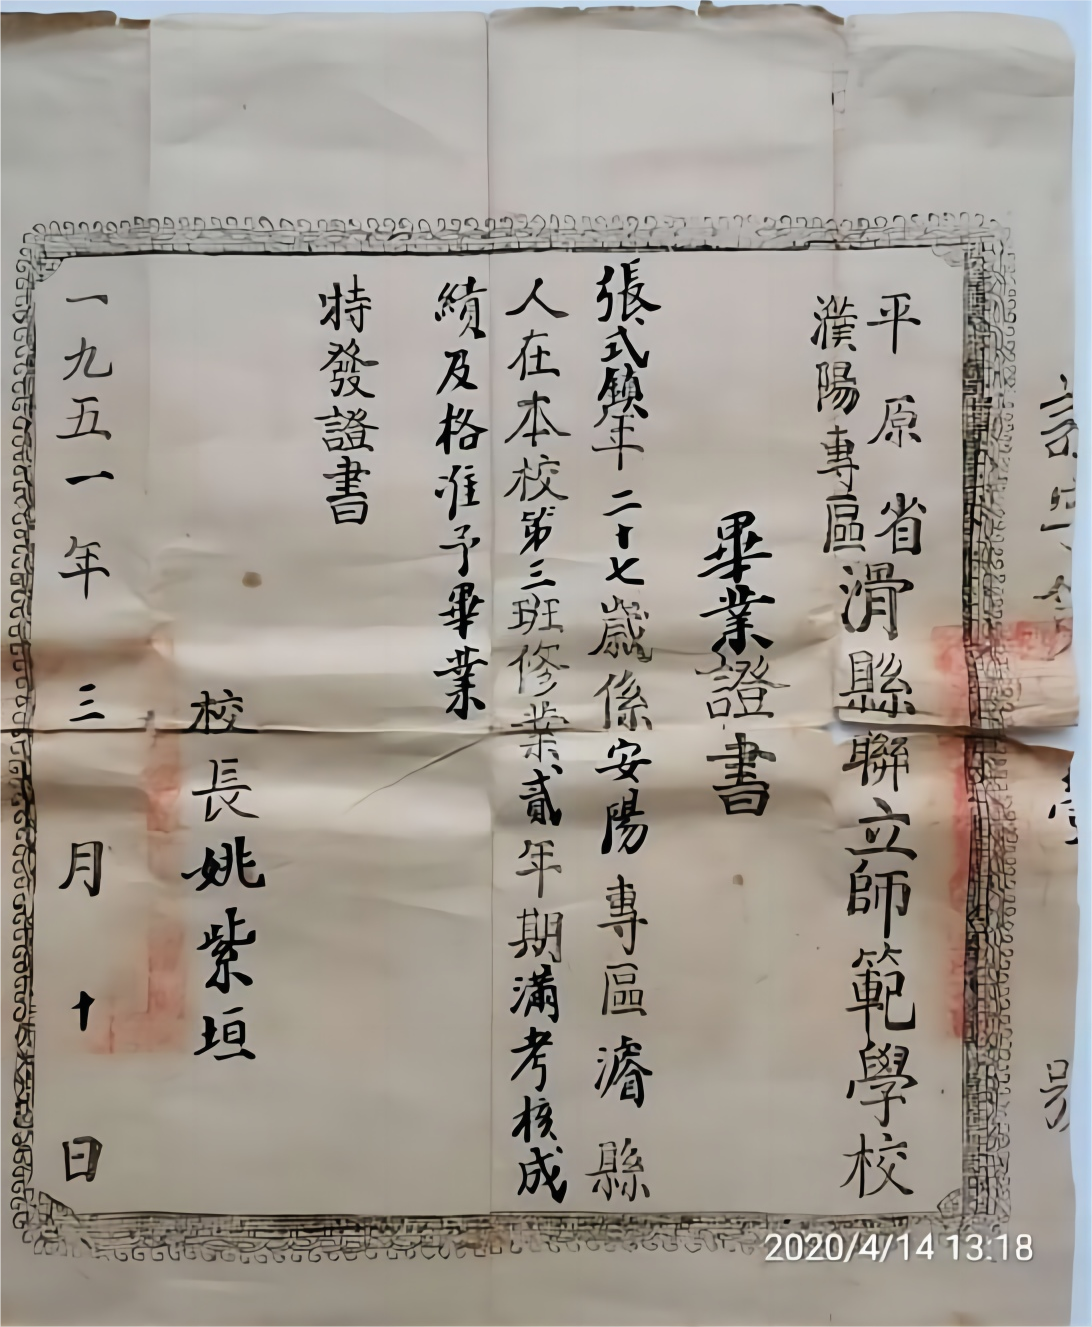 平原省
濮陽專區
滑縣聯立師範學校
畢業證書
張式鎮年二十七歲係安陽專區濬縣
人在本校第三班修業貳年期滿考核成
績及格准予畢業
特發證書
校長姚紫垣
一九五一年三月十日
2020/4/14 13:18